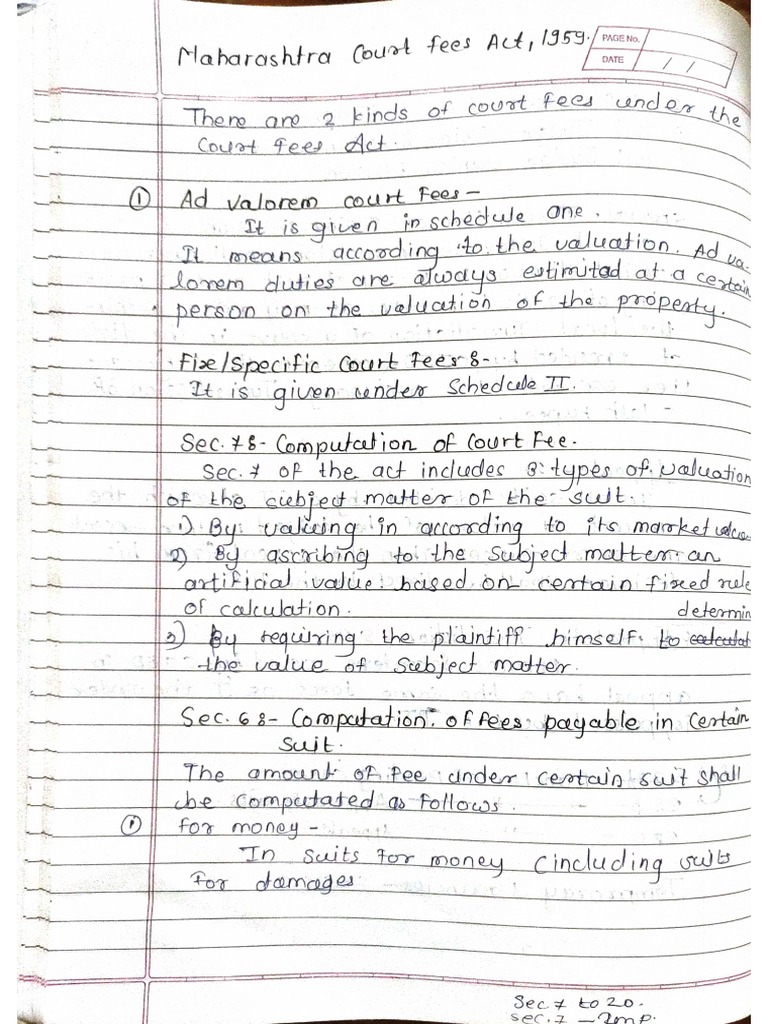 Maharashtra Court fees Act, 1959.
PAGE No.
DATE / /
There are 2 kinds of court fees under the
Court Fees Act.
① Ad valorem court fees -
It is given in schedule one.
It means according to the valuation. Ad va-
lorem duties are always estimited at a certain
person on the valuation of the property.
Fixe/Specific Court Fees :-
It is given under Schedule II.
Sec. 7 :- Computation of Court Fee.
Sec. 7 of the act includes 3 types of valuation
of the subject matter of the suit.
1) By valuing in according to its market value
2) By ascribing to the subject matter an
artificial value based on certain fixed rule
of calculation. determin
3) By requiring the plaintiff himself to calculat
the value of subject matter.
Sec. 6 :- Computation of fees payable in certain
suit.
The amount of fee under certain suit shall
be computated as follows.
① for money -
In suits for money (including suits
for damages
Sec 7 to 20.
Sec. 7 - Imp.